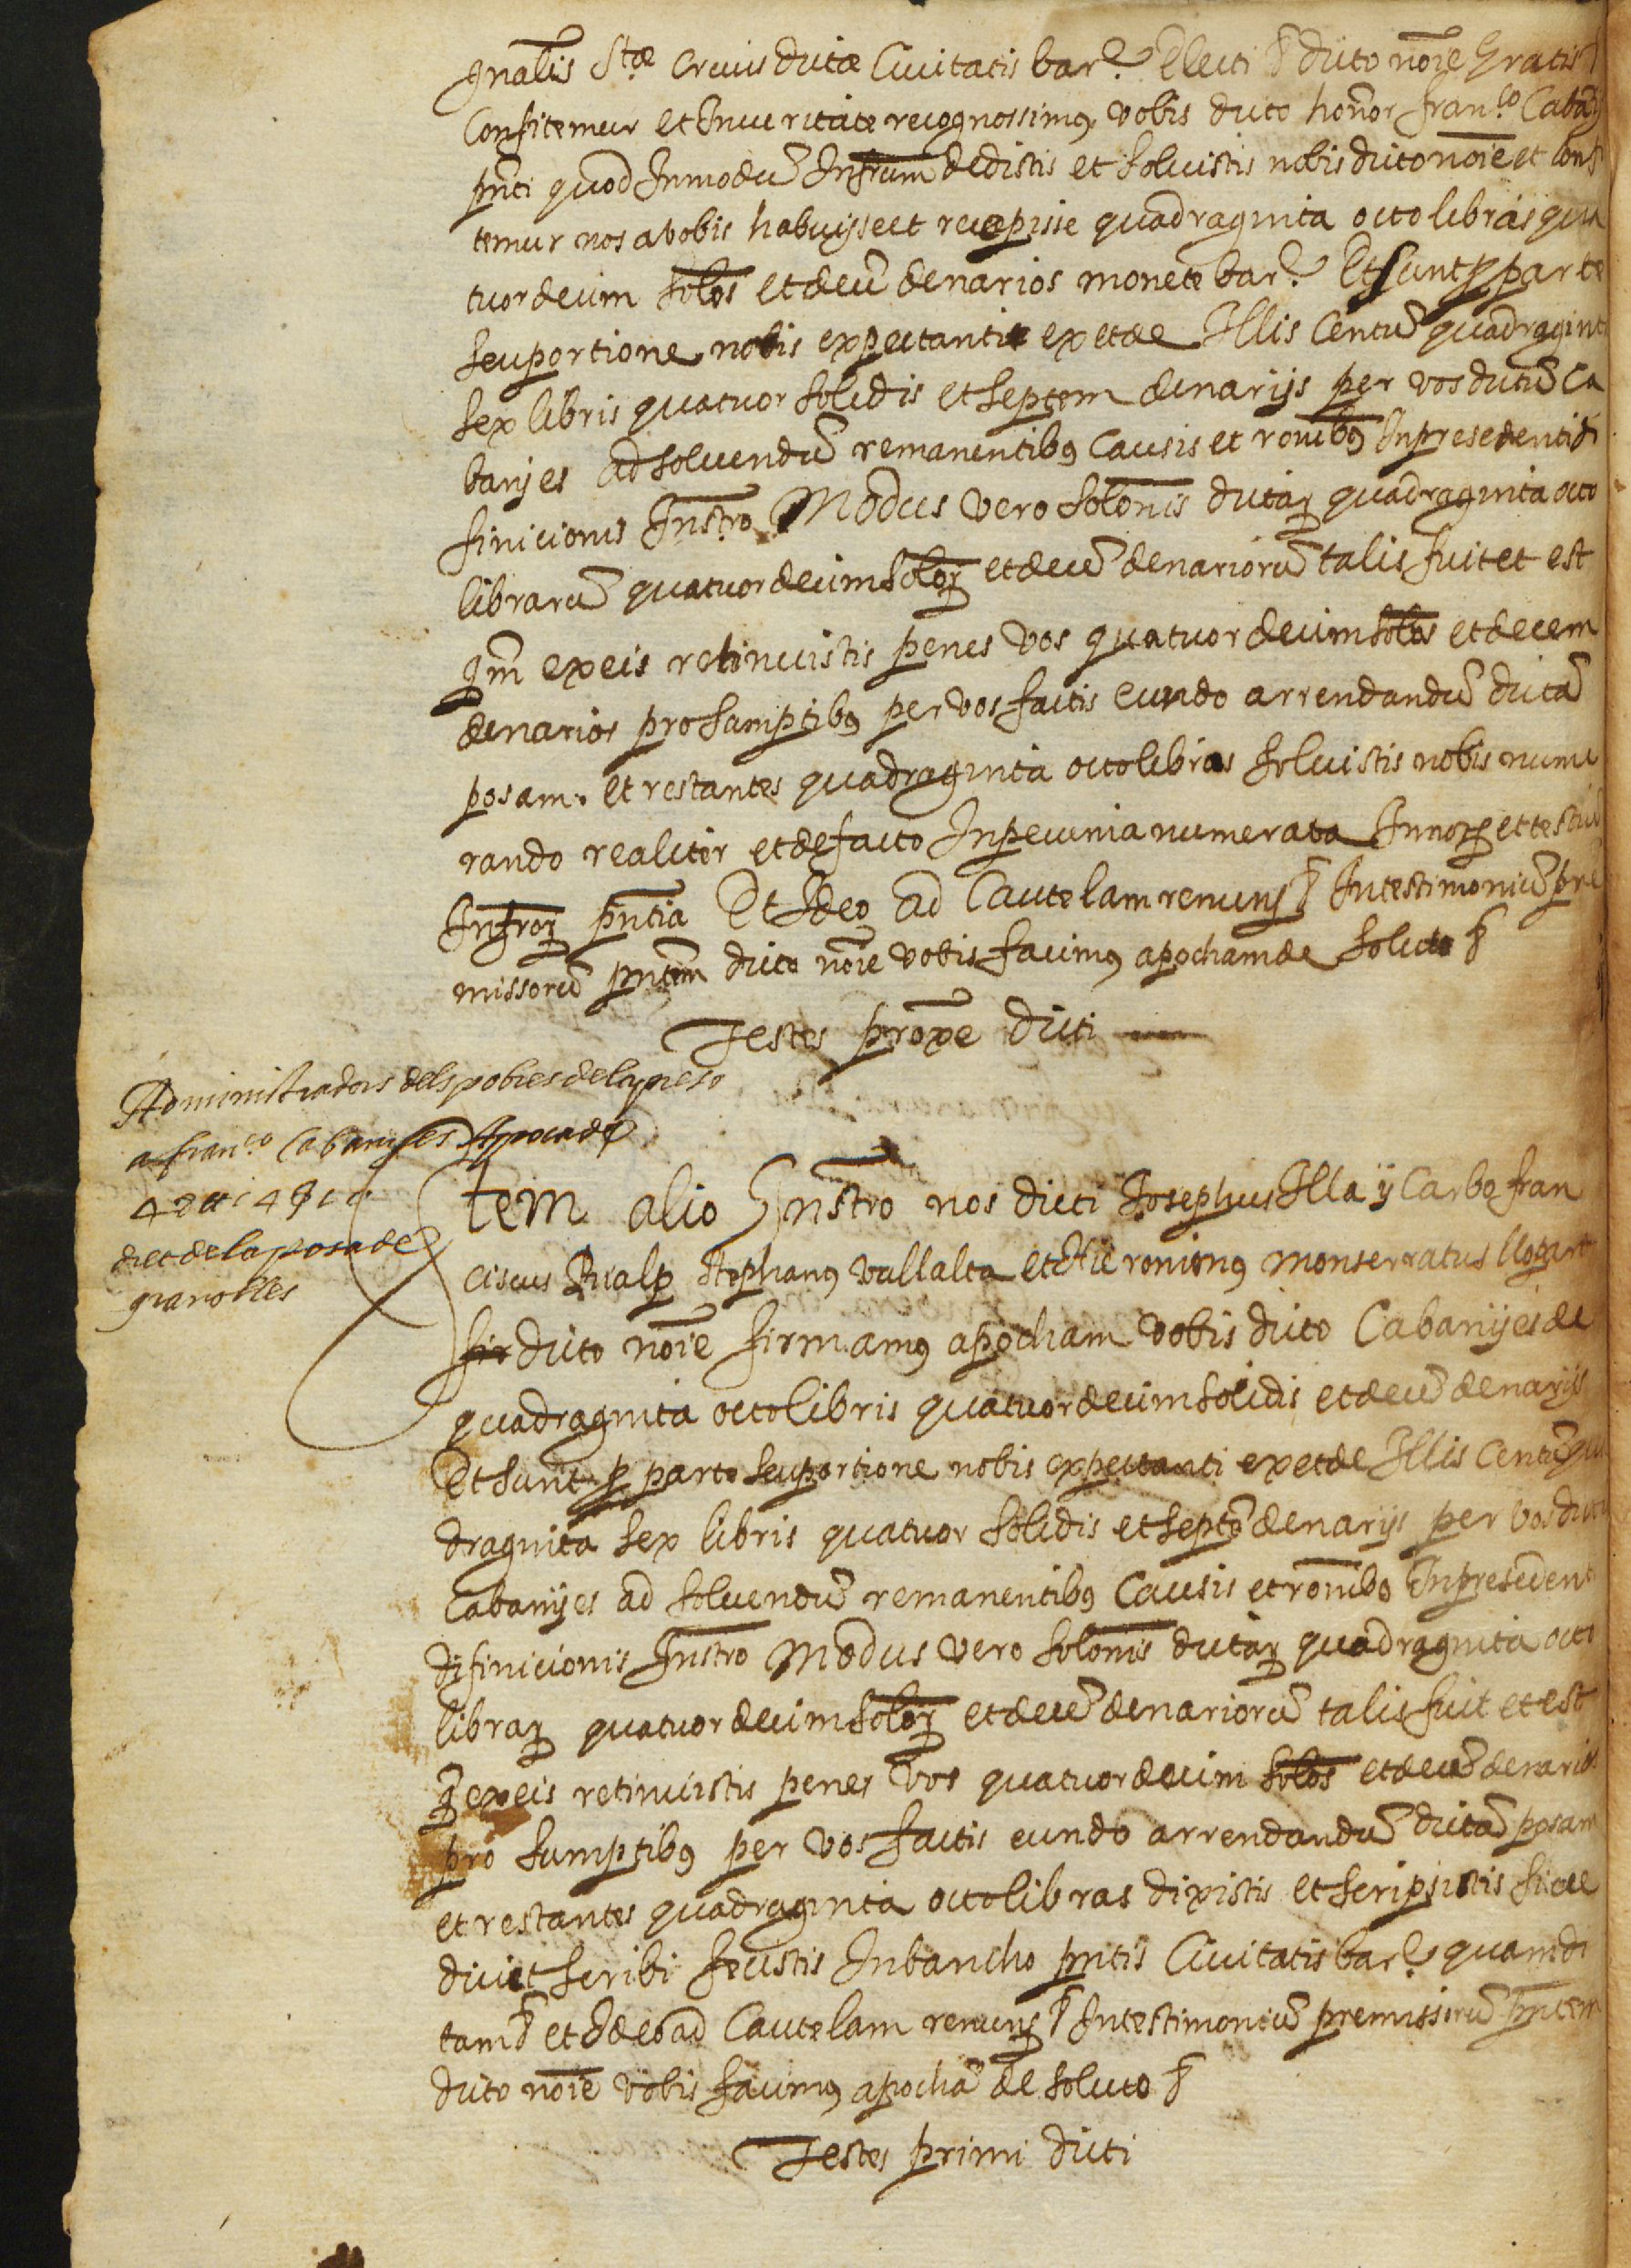 gnalis Stæ Crucis dictæ Civitatis bar. Electi & dicto noie Gratis &
Confitemur et In veritate recognossimus vobis dicto honor franco Cabany
pnti quod In modu Infrum dedistis et solvistis nobis dicto noie et conf
temur nos a vobis habuisse et recepisse quadraginta octo libras qua
tuordecim solos et decē denarios monete bar. Et sunt p parte
seu portione nobis expectanti ex et de Illis Centū quadragint
sex libris quatuor solidis et septem denarijs per vos dictū Ca
banyes ad solvendū remanentibus Causis et ronibus In presedenti di
finicionis Instro Modus vero solonis dictar quadraginta octo
librarū quatuordecim solor et decē denariorū talis fuit et est
qm ex eis retinuistis penes vos quatuordecim solos et decem
denarios pro sumptibus per vos factis eundo arrendandū dictā
posam. et restantes quadraginta octo libras solvistis nobis nume
rando realiter et de facto In pecunia numerata In nor et testiū
Infror pntia Et Ideo ad Cautelam renuns & In testimoniū pre
missorū pntem dicto noie vobis facimus apocham de soluto &
Testes proxe dicti
Administradors dels pobres de la preso
a franco Cabanyes Apoca de
48 ll 14 s 10
dret de la posa de
granolles
Item alio Instro nos dicti Josephus Illa y Carbo fran
ciscus Rialp Stephanus vallalta et Hieronimus Monserratus llopart
fir dicto noie firmamus apocham vobis dicto Cabanyes de
quadraginta octo libris quatuordecim solidis et decē denarijs
Et sunt p parte seu portione nobis expectanti ex et de Illis Centū qua
draginta sex libris quatuor solidis et septē denarijs per vos dictū
Cabanyes ad solvendū remanentibus Causis et ronibus In presedent
difinicionis Instro Modus vero solonis dictar quadraginta octo
librar quatuordecim solor et decē denariorū talis fuit et est
q ex eis retinuistis penes vos quatuordecim solos et decē denarios
pro sumptibus per vos factis eundo arrendandū dictā posam
et restantes quadraginta octo libras dixistis et scripsistis sive
dici et scribi fecistis In bancho pntis Civitatis bar. quam di
tam & et Ideo ad Cautelam renuns & In testimoniū premissorū pntem
dicto noie vobis facimus apochā de soluto &
Testes primi dicti